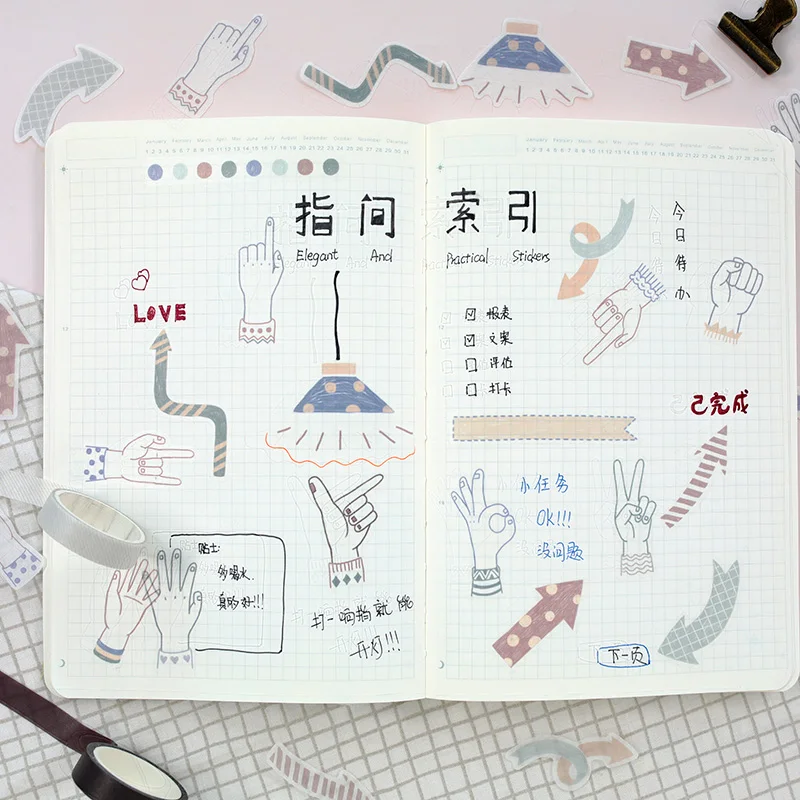 January February March April May June July August September October November December
1 2 3 4 5 6 7 8 9 10 11 12 13 14 15 16 17 18 19 20 21 22 23 24 25 26 27 28 29 30 31
January February March April May June July August September October November December
1 2 3 4 5 6 7 8 9 10 11 12 13 14 15 16 17 18 19 20 21 22 23 24 25 26 27 28 29 30 31
指向索引
Elegant And Practical Stickers
LOVE
贴士:
多喝水.
真的好!!!
打一响指就能
开灯!!!
今日待办
报表
文案
评估
打卡
已完成
小任务
OK!!!
没问题
下一页